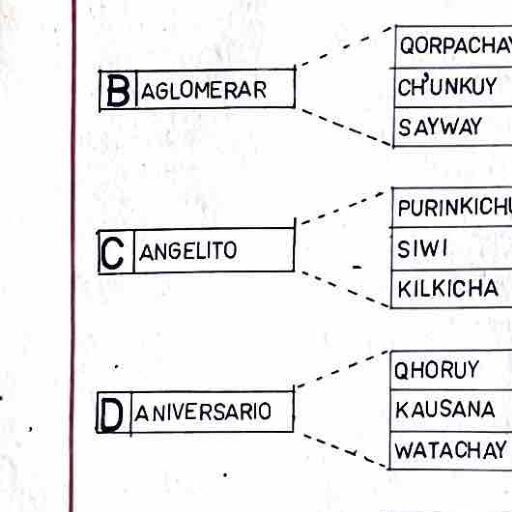 B AGLOMERAR
QORPACHAY
CH'UNKUY
SAYWAY
C ANGELITO
PURINKICHU
SIWI
KILKICHA
D ANIVERSARIO
QHORUY
KAUSANA
WATACHAY